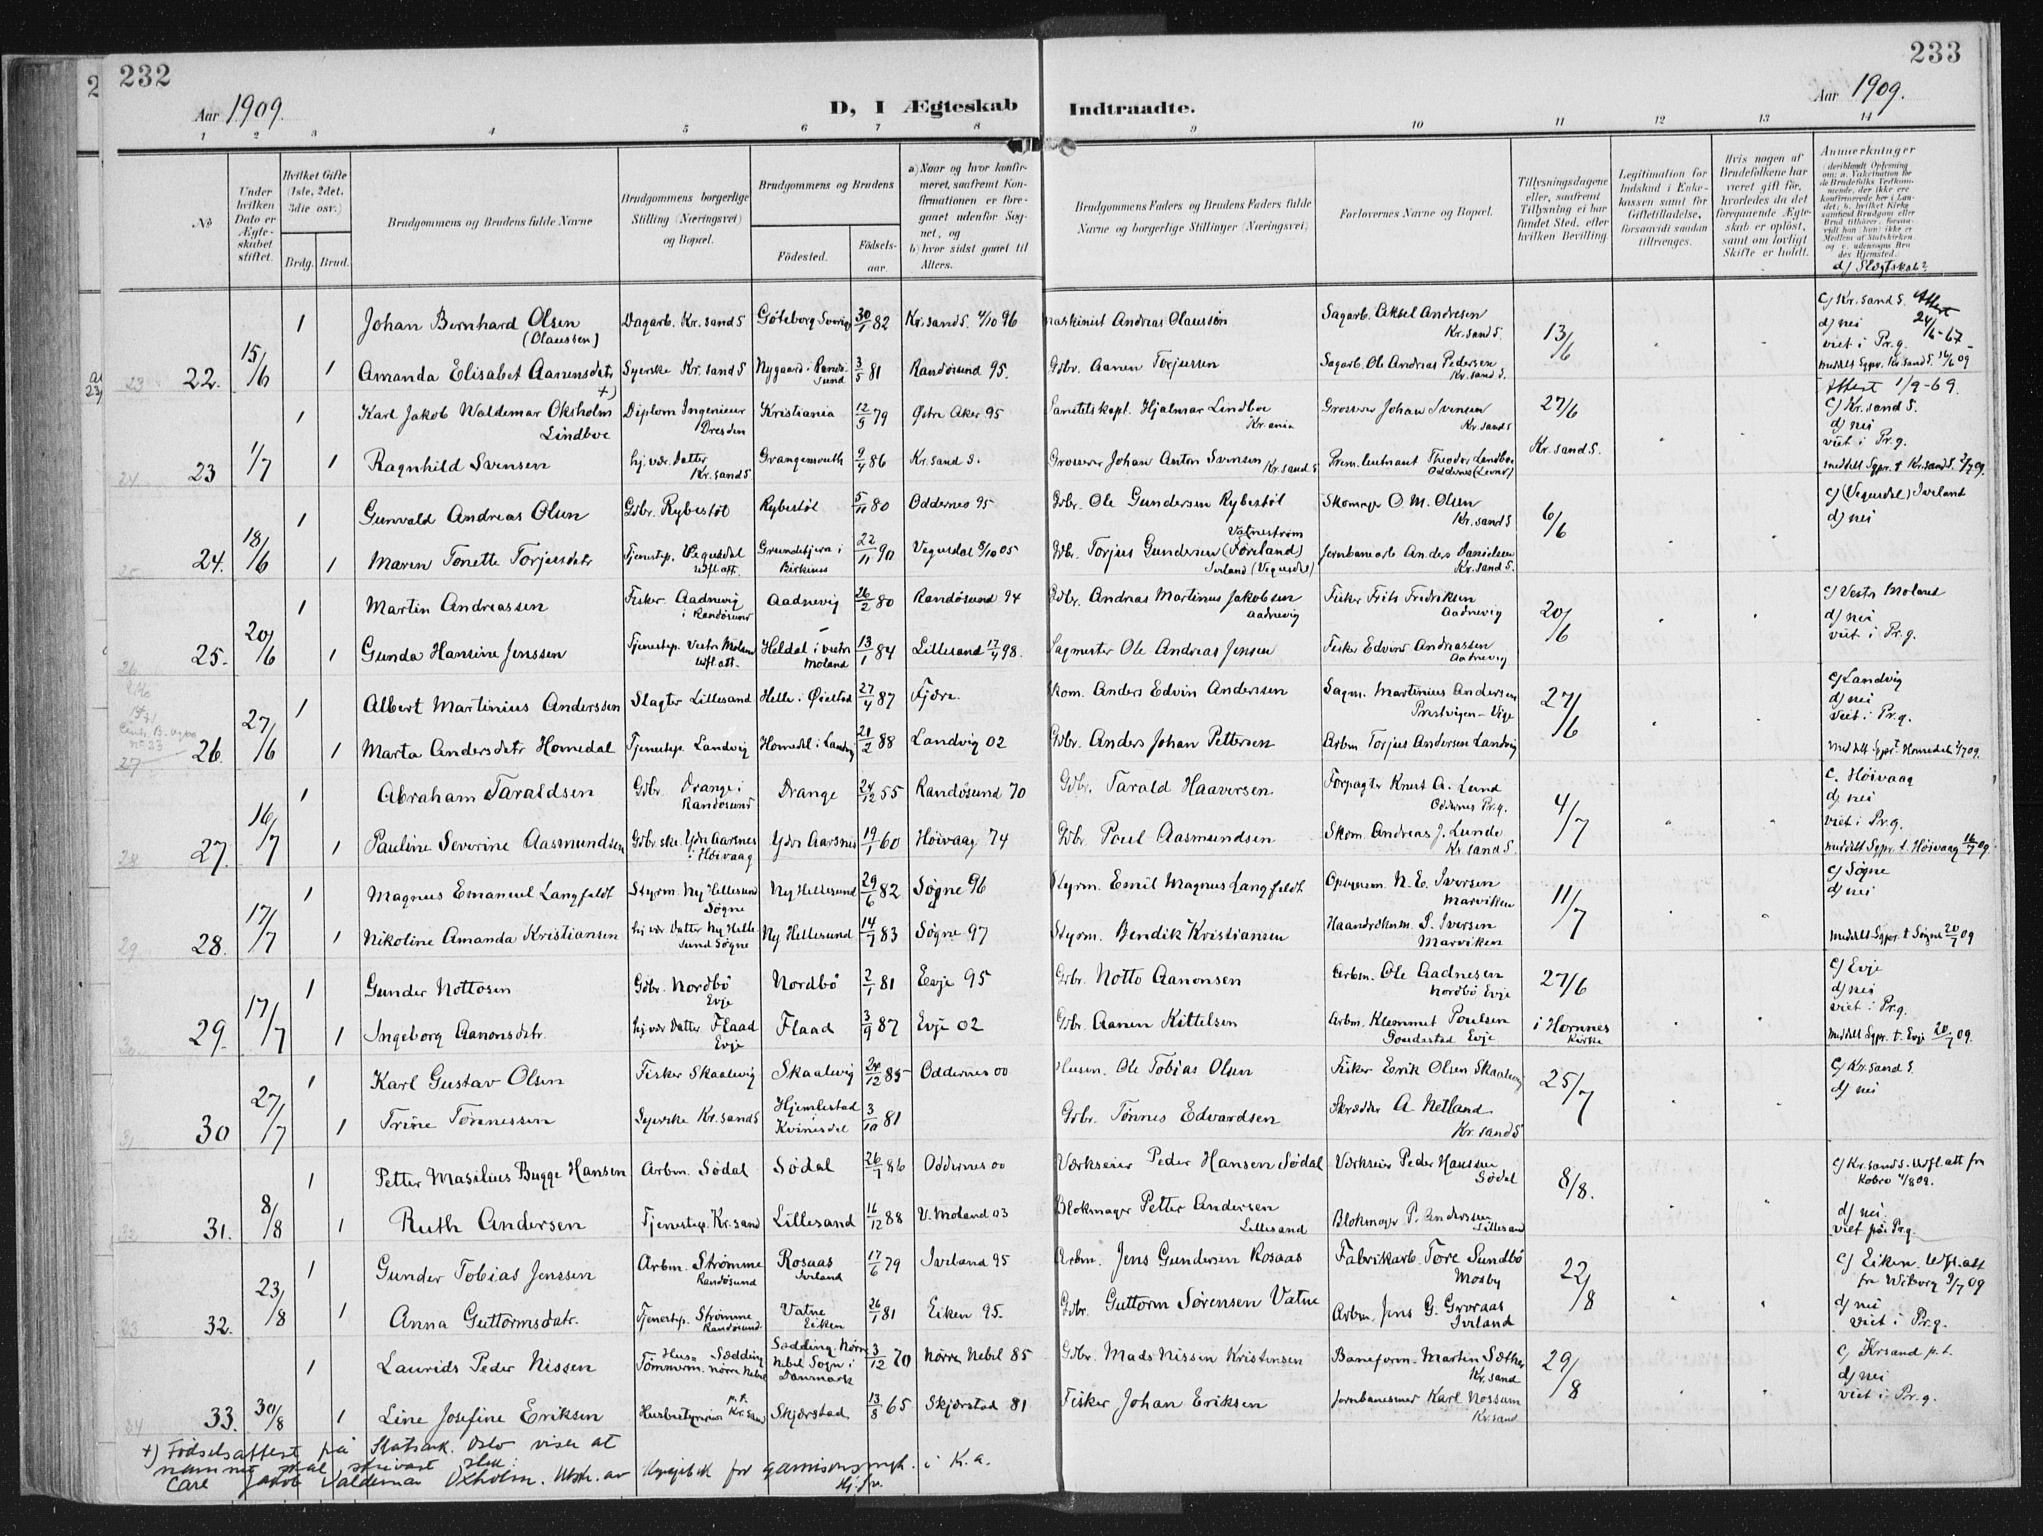 232
233
Aar 1909.
D, I Ægteskab
Indtraadte.
Aar 1909.
1 2 3 4 5 6 7 8 9 10 11 12 13 14
No
Under hvilken Dato er Ægteskabet stiftet.
Hvilket Gifte (1ste, 2det, 3die osv.)
Brdg. Brud.
Brudgommens og Brudens fulde Navne
Brudgommens borgerlige Stilling (Næringsvei) og Bopæl.
Brudgommens og Brudens
Födested.
Födselsaar.
a) Naar og hvor konfirmeret, saafremt Konfirmationen er foregaaet udenfor Sognet, og
b) hvor sidst gaaet til Alters.
Brudgommens Faders og Brudens Faders fulde Navne og borgerlige Stillinger (Næringsvei)
Forlovernes Navne og Bopæl.
Tillysningsdagene eller, saafremt Tillysning ei har fundet Sted, efter hvilken Bevilling.
Legitimation for Indskud i Enkekassen samt for Giftetilladelse, forsaavidt saadan tiltrænges.
Hvis nogen af Brudefolkene har været gift för, hvorledes da det foregaaende Ægteskab er oplöst, samt om lovligt Skifte er holdt.
Anmerkninger
d) Slegtskab?
22. 15/6 1 Johan Bernhard Olsen (Olaussen) Dagarb. Kr.sand S Göteborg Sverig 30/1 82 Kr.sand S. 4/10 96 Maskinist Andreas Olaussön Sagarb. Aksel Andresen Kr.sand S. 13/6 c) Kr.sand S. Attest 24/6-67 d) nei viet i Pr.g.
1 Amanda Elisabet Aanensdatr Syerske Kr.sand S Nygaard i Randösund 3/5 81 Randösund 95. Gdbr. Aanen Torjussen Sagarb. Ole Andreas Pedersen Kr.sand S. meddelt Sgpr. Kr.sand S. 16/6 09
23 1/7 1 Karl Jakob Waldemar Oksholm Lindboe +) Diplom Ingenieur Dresden Kristiania 12/9 79 Östre Aker 95 Sanitetskapt. Hjalmar Lindboe Kr.ania Grosserer Johan Svensen Kr.sand S 27/6 Attest 1/9-69 c) Kr.sand S. d) nei viet i Pr.g.
1 Ragnhild Svensen hj.vær. Datter Kr.sand S Grangemouth 9/4 86 Kr.sand S. Grosserer Johan Anton Svensen Kr.sand S Prem.lieutnant Theodor Lindboe Oddernes (Lund) Kr.sand S. meddelt Sgpr. t. Kr.sand S. 2/7 09.
24. 18/6 1 Gunvald Andreas Olsen Gdbr. Rybestöl Rybestöl 5/11 80 Oddernes 95 Gdbr. Ole Gundersen Rybestöl Vatnestrøm Skomager O. M. Olsen Kr.sand S 6/6 c) (Vegusdal) Iveland d) nei
1 Maren Tonette Torjusdatr Tjenestep. Vegusdal udfl.att. Birkenes 22/11 90 Vegusdal 8/10 05 Gdbr. Torjus Gundersen Iveland (Vegusdal) Jernbanearb Anders Danielsen Kr.sand S.
25. 20/6 1 Martin Andreassen Fisker Aadnevig i Randösund Aadnevig 26/2 80 Randösund 94 Gdbr. Andreas Martinus Jakobsen Aadnevig Fisker Frits Fredriksen Aadnevig 20/6 c) Vestre Moland d) nei viet i Pr.g.
1 Gunda Hansine Jenssen Tjenestep. Vestre Moland udfl.att. Heldal i vestre Moland 13/1 84 Lillesand 17/4 98. Sagmester Ole Andreas Jensen Fisker Edvind Andreassen Aadnevig
26. 27/6 1 Albert Martinius Anderssen Slagter Lillesand Helle i Öiestad 27/4 87 Fjære. Skom. Anders Edvin Anderssen Sagm. Martinius Andersen Prestvigen - Vige 27/6 c) Landvig d) nei viet i Pr.g.
1 Marta Andersdatr Homedal Tjenestep. Landvig Homedal i Landvig 21/2 88 Landvig 02 Gdbr. Anders Johan Pettersen Arbm Torjus Andersen Landvig
27. 16/7 1 Abraham Taraldsen Gdbr. Drange i Randösund Drange 24/12 55 Randösund 70 Gdbr. Tarald Haaversen Forpagter Knut A. Lund Oddernes Pr.g. 4/7 c. Höivaag d) nei viet i Pr.g.
1 Pauline Severine Aasmundsen Gdbr.ske Ydre Aarsnes i Höivaag Ydre Aarsnes 19/1 60 Höivaag 74 Gdbr Poul Aasmundsen Skom. Andreas J. Lunde Kr.sand S. meddelt Sgpr. t. Höivaag 16/7 09.
28. 17/7 1 Magnus Emanuel Langfeldt Styrm. Ny Hellesund Søgne Ny Hellesund 29/6 82 Søgne 96 Styrm. Emil Magnus Langfeldt Opsynsm. N. E. Iversen Marviken 11/7 c) Søgne d) nei
1 Nikoline Amanda Kristiansen hj.vær Datter Ny Hellesund Søgne Ny Hellesund 14/7 83 Søgne 97 Styrm. Bendik Kristiansen Haandverksm. S. Iversen Marviken meddelt Sgpr. t. Søgne 20/7 09
29. 17/7 1 Gunder Nottosen Gdbr. Nordbö Evje Nordbö 2/1 81 Evje 95 Gdbr. Notto Aanonsen Arbm. Ole Aadnesen Nordbö Evje 27/6 c) Evje d) nei viet i Pr.g.
1 Ingeborg Aanonsdatr. hj.vær Datter Flaad Evje Flaad 3/9 87 Evje 02 Gdbr. Aanen Kittelsen Arbm. Klemmet Poulsen Evje i Hornnes Kirke meddelt Sgpr. t. Evje 20/7 09.
30 27/7 1 Karl Gustav Olsen Fisker Skaalevig Skaalevig 24/12 85 Oddernes 00 Husm. Ole Tobias Olsen Fisker Erik Olsen Skaalevig 25/7 c) Kr.sand S. d) nei
1 Trine Tönnessen Syerske Kr.sand S Hjemlestad Kvinesdal 3/10 81 Gdbr. Tønnes Edvardsen Skrædder A Netland Kr.sand S
31. 8/8 1 Petter Masilius Bugge Hansen Arbm. Södal Södal 26/7 86 Oddernes 00 Værkseier Peder Hansen Södal Værkseier Peder Hanssen Södal 8/8. c) Kr.sand S. Udfl.att fra
1 Ruth Andersen Tjenestep. Kr.sand Lillesand 16/12 88 V. Moland 03 Blokmager Petter Andersen Lillesand Blokmager P. Anderssen Lillesand d) nei. viet på Pr.g.
32. 23/8 1 Gunder Tobias Jenssen Arbm. Strømme Randösund Rosaas Iveland 17/6 79 Iveland 95 Arbm. Jens Gundersen Rosaas Fabrikarb. Tore Sundbö Mosby 22/8 c) Eiken. Udfl.att fra Wiborg 9/7 09
1 Anna Guttormsdatr. Tjenestep. Strømme Randösund. Vatne Eiken 26/1 81 Eiken 95. Gdbr. Guttorm Sørensen Vatne Arbm. Jens G. Iveland d) nei viet i Pr.g.
33. 30/8 1 Laurids Peder Nissen Hus= Tömmerm. Sædding nörre Nebel Sædding Nörre Nebel Sogn i Danmark 3/12 70 Nörre Nebel 85 Gdbr. Mads Nissen Kristensen Baneform. Martin Sæther Kr.sand 29/8 c) Krsand p.t. d) nei viet i Pr.g.
1 Line Josefine Eriksen Husbestyrerinde p.t. Kr.sand Skjærstad 13/8 65 Skjærstad 81 Fisker Johan Eriksen Jernbanesmed Karl Nossum Kr.sand
+) Födselsattest på Statsark. Oslo viser at
namnet skal skrivast slik:
Carl Jakob Valdemar Oxholm. Utskr. av Kyrkjebok for garnisonsmgh. i K.a.